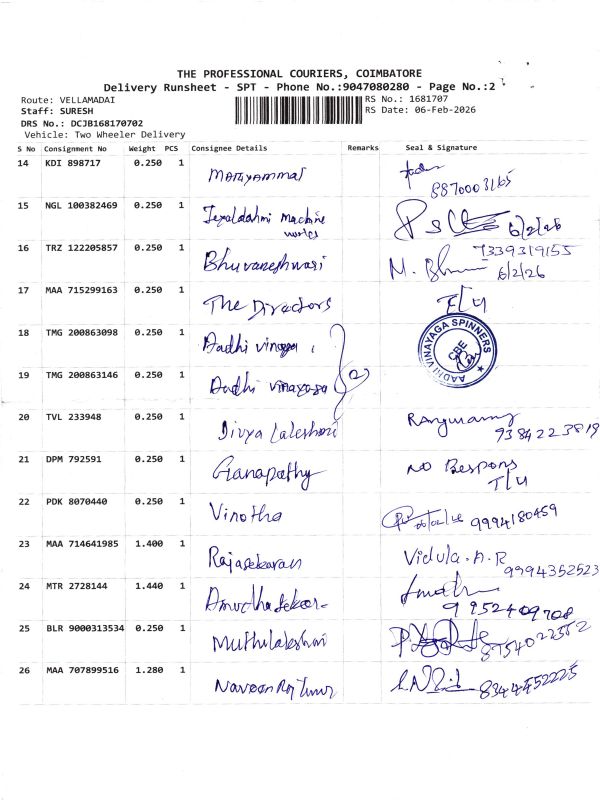 THE PROFESSIONAL COURIERS, COIMBATORE
Delivery Runsheet - SPT - Phone No.:9047080280 - Page No.:2
Route: VELLAMADAI
RS No.: 1681707
Staff: SURESH
RS Date: 06-Feb-2026
DRS No.: DCJB168170702
Vehicle: Two Wheeler Delivery
S No Consignment No Weight PCS Consignee Details Remarks Seal & Signature
14 KDI 898717 0.250 1 Mariyammal
8870003165
15 NGL 100382469 0.250 1 machine works 6/2/26
16 TRZ 122205857 0.250 1 Bhuvaneshwari 7339319155
M. 6/2/26
17 MAA 715299163 0.250 1 The Directors T/U
18 TMG 200863098 0.250 1 Aadhi vinaya
AADHI VINAYAGA SPINNERS CBE
19 TMG 200863146 0.250 1 Aadhi vinayaga 2
20 TVL 233948 0.250 1 Divya
9384223819
21 DPM 792591 0.250 1 Ganapathy NO Respons
T/U
22 PDK 8070440 0.250 1 Vinotha 9994180459
23 MAA 714641985 1.400 1 Rajasekaran Vidula.A.R
9994352523
24 MTR 2728144 1.440 1
9952409708
25 BLR 9000313534 0.250 1 Muthulakshmi 8754022552
26 MAA 707899516 1.280 1 Naveen 8344452225